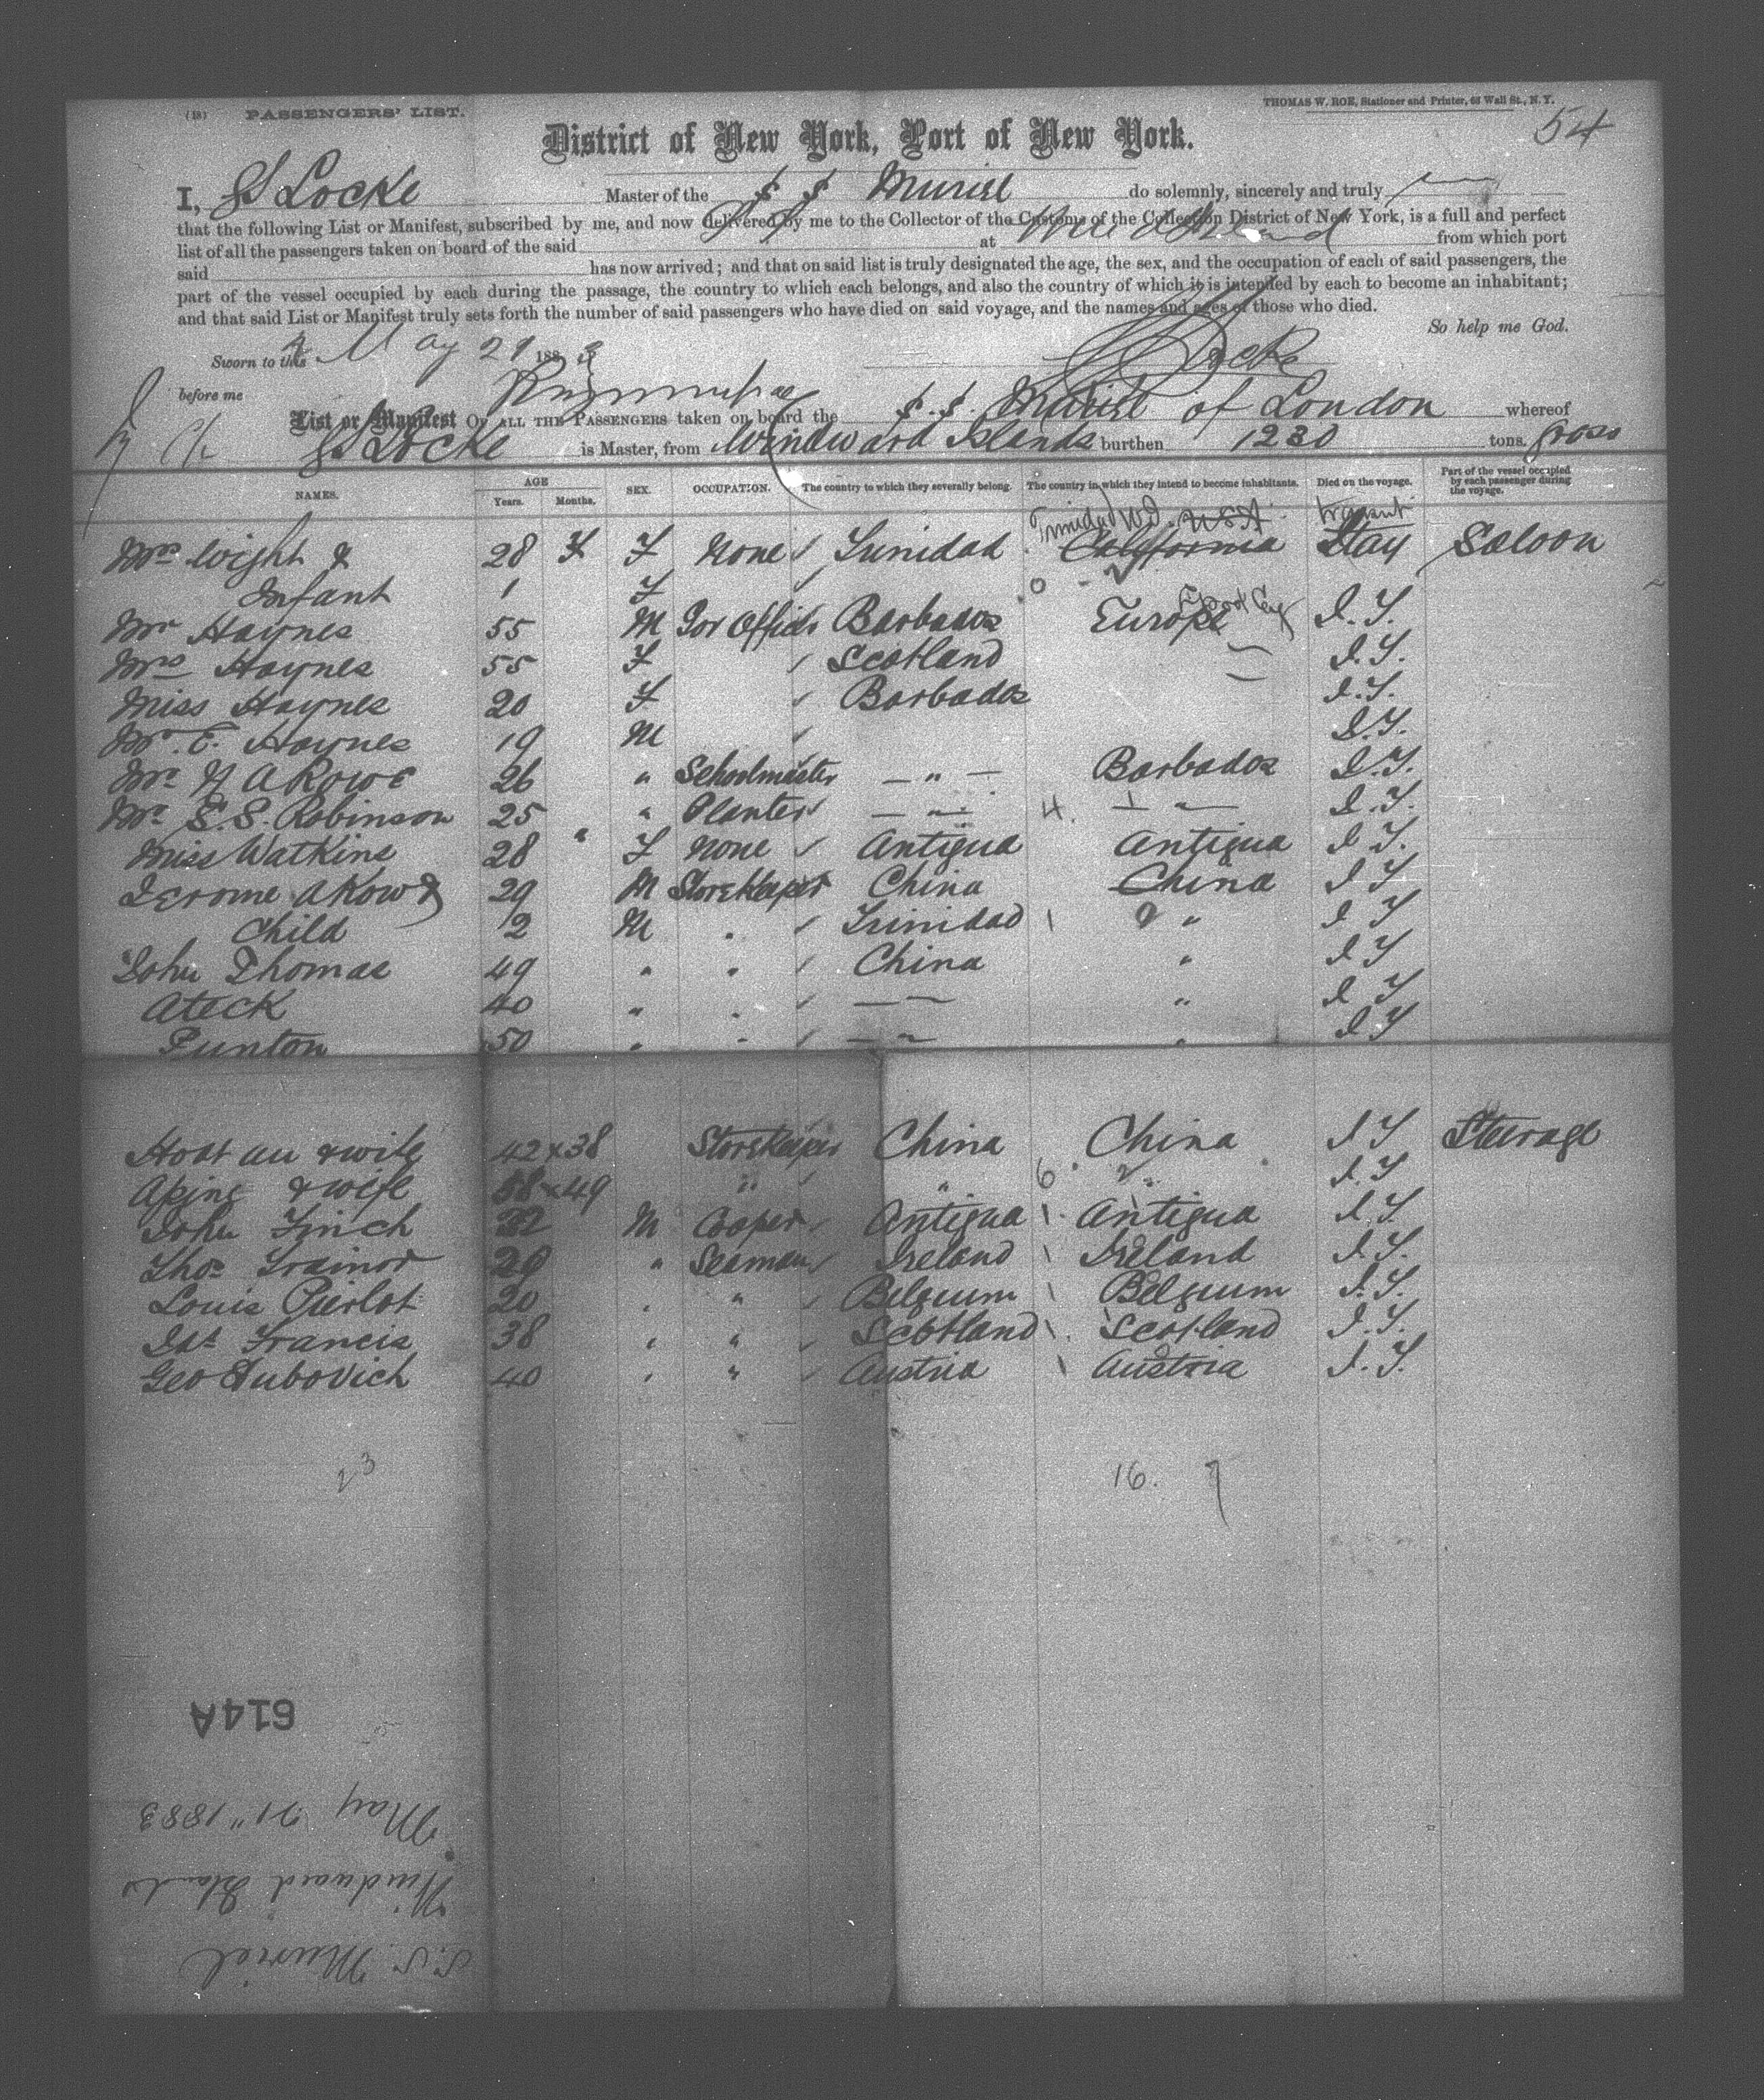 (B) PASSENGERS' LIST.
THOMAS W. ROE, Stationer and Printer, 63 Wall St., N. Y.
54
District of New York, Port of New York.
I, S Locke Master of the S S Muriel do solemnly, sincerely and truly
that the following List or Manifest, subscribed by me, and now delivered by me to the Collector of the Customs of the Collection District of New York, is a full and perfect
list of all the passengers taken on board of the said at from which port
said has now arrived; and that on said list is truly designated the age, the sex, and the occupation of each of said passengers, the
part of the vessel occupied by each during the passage, the country to which each belongs, and also the country of which it is intended by each to become an inhabitant;
and that said List or Manifest truly sets forth the number of said passengers who have died on said voyage, and the names and ages of those who died.
So help me God.
Sworn to this May 21 1883
S Locke
before me
List or Manifest OF ALL THE PASSENGERS taken on board the S.S. Muriel of London whereof
S Locke is Master, from Windward Islands burthen 1230 tons. gross
NAMES. AGE Years. Months. SEX. OCCUPATION. The country to which they severally belong. The country in which they intend to become inhabitants. Died on the voyage. Part of the vessel occupied by each passenger during the voyage.
Trinidad W.I. USA
Mrs Wight & 28 F None Trinidad California Stay Saloon
Infant 1 F
Mr Haynes 55 M Gov Officer Barbados Europe I.T.
Mrs Haynes 55 F Scotland I.T.
Miss Haynes 20 F Barbados I.T.
Mr. E. Haynes 19 M I.T.
Mr. N A Rowe 26 " Schoolmaster — " — Barbados I.T.
Mr. S. S. Robinson 25 " Planter — " — 4. — " — I.T.
Miss Watkins 28 " F None Antigua Antigua I T.
Jerome Akow & 29 M StoreKeeper China China I T
Child 2 M " Trinidad 1 " I T
John Thomas 49 " " China " I T
Ateck 40 " " — — " I T
Punton 50 " " — " — " I T
Hoat au & wife 42 & 38 Storekeeper China China I T Steerage
Aping & wife 58 & 49 " " 6 " I.T.
John Finch 22 M Cooper Antigua 1 Antigua I.T.
Thos Trainor 29 " Seaman Ireland 1 Ireland I.T.
Louis Pierlot 20 " " Belgium 1 Belgium I.T.
Francis 38 " " Scotland 1 Scotland I.T.
Geo Gubovich 40 " " Austria 1 Austria I.T.
23
16. 7
614A
May 21" 1883
Windward Islands
S.S. Muriel